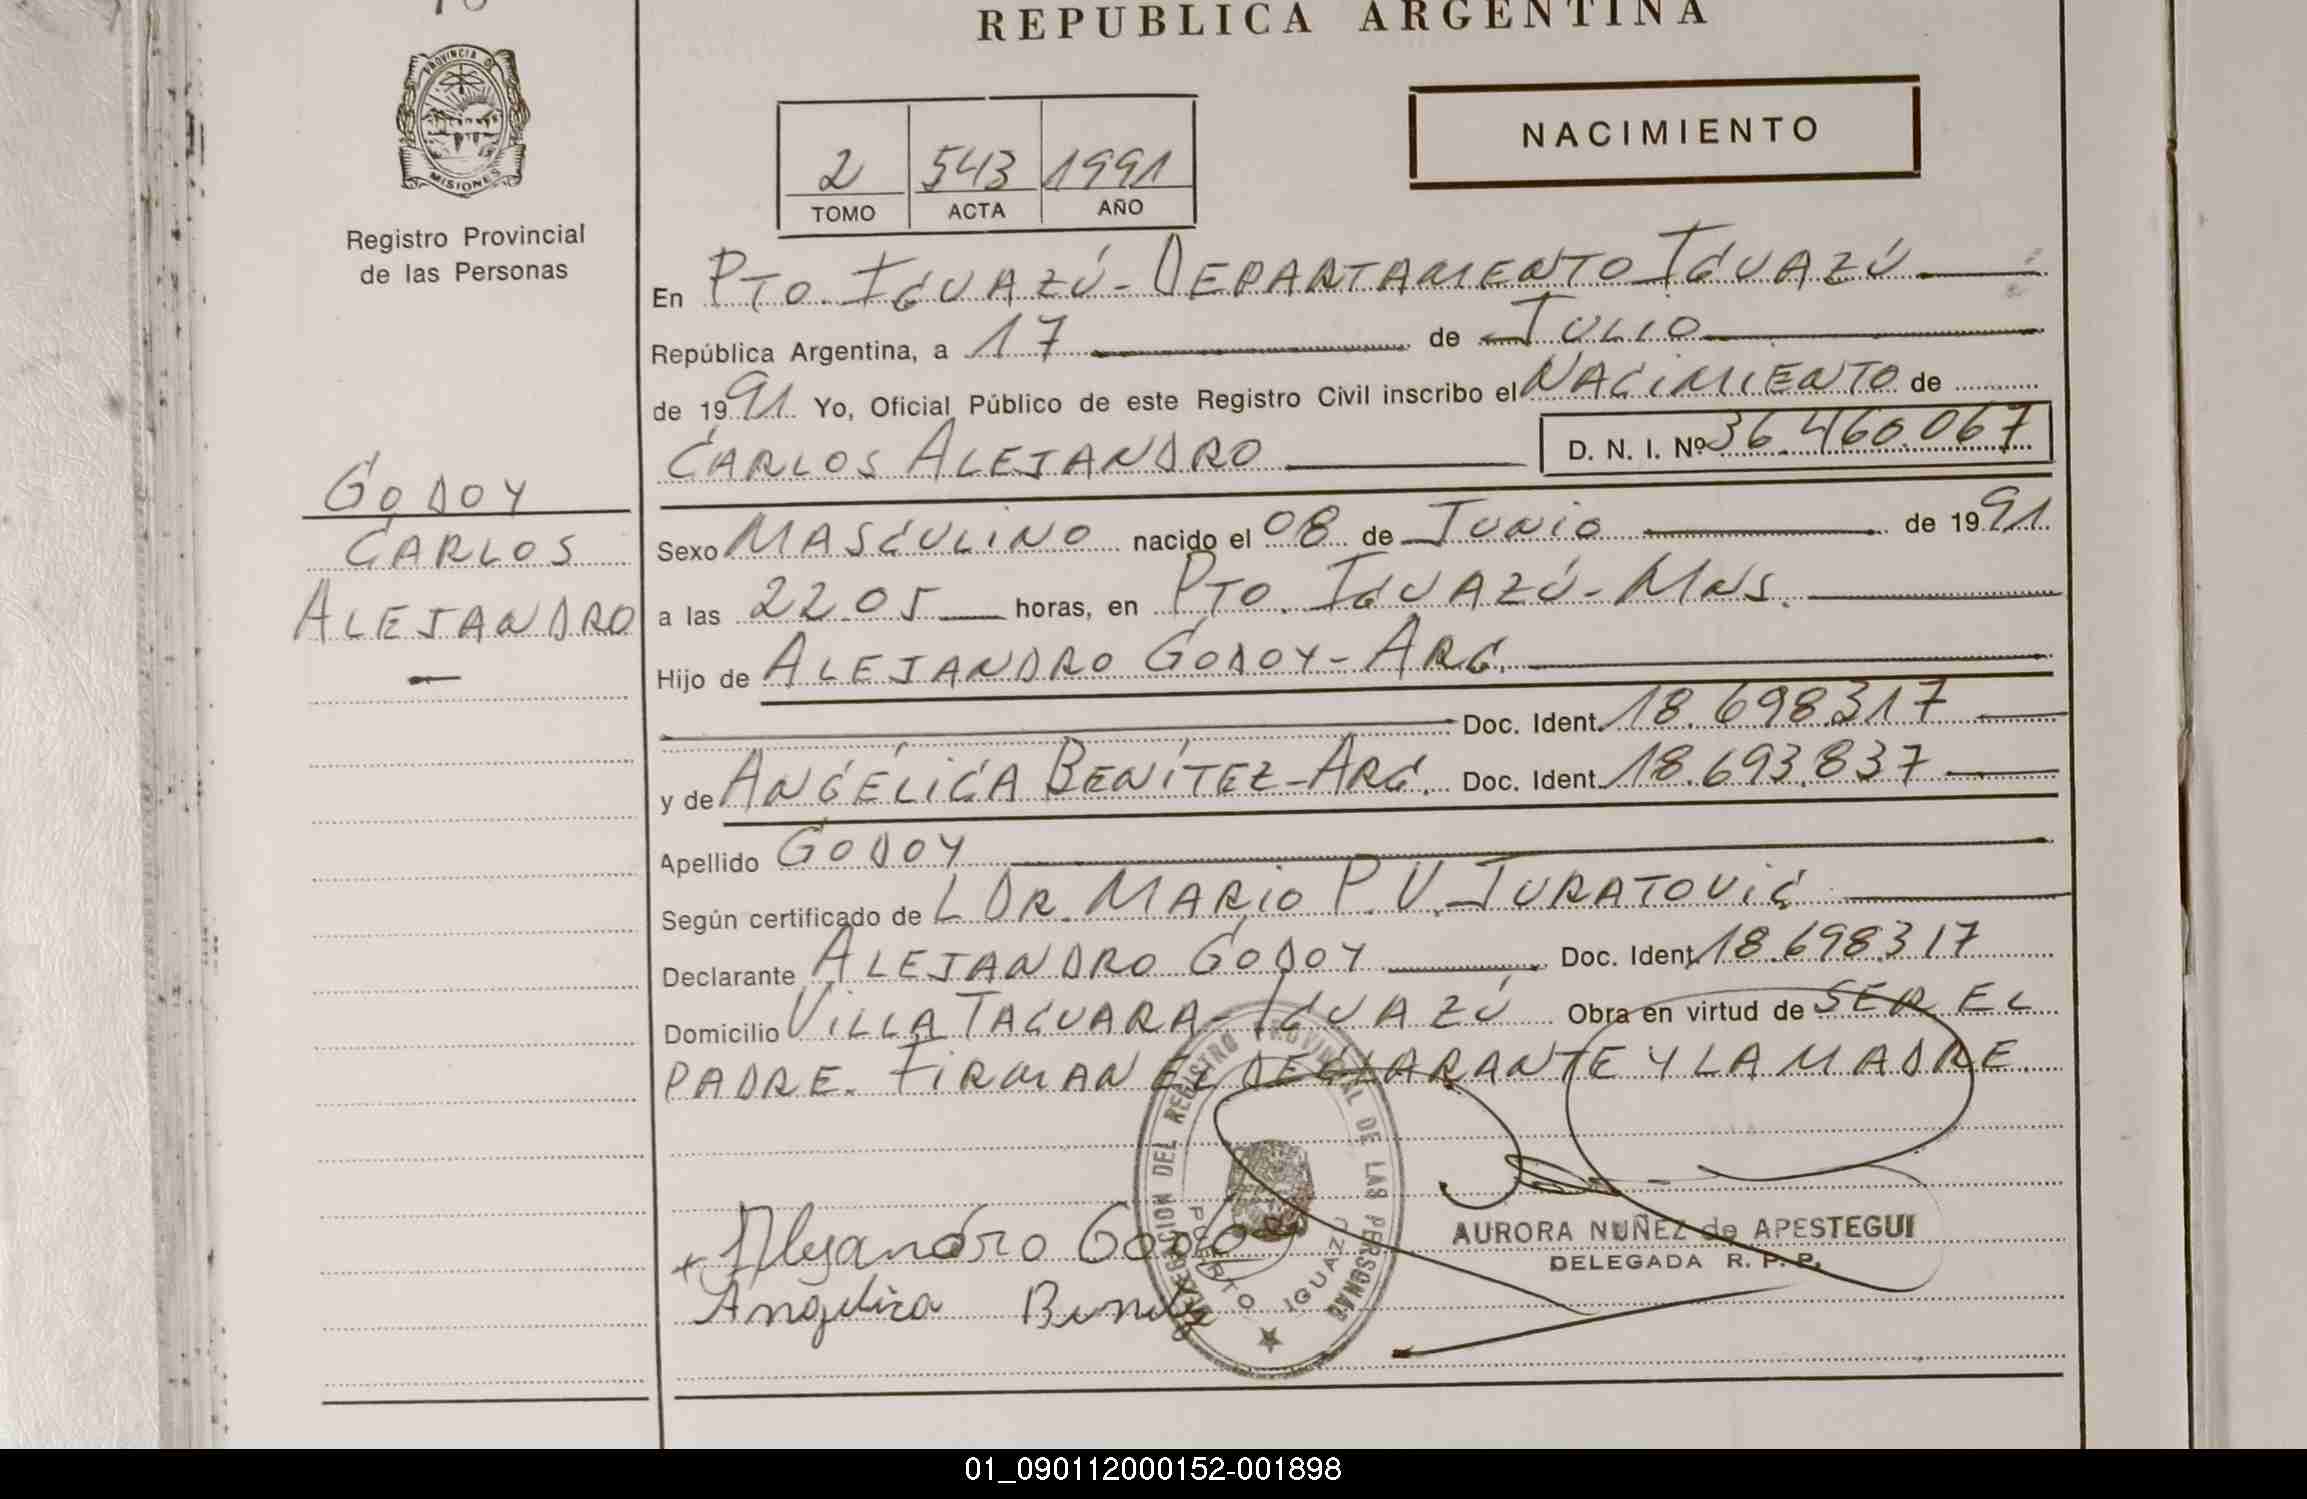 REPUBLICA ARGENTINA
PROVINCIA D
MISIONES
Registro Provincial
de las Personas
NACIMIENTO
2 543 1991
TOMO ACTA AÑO
En PTO. IGUAZÚ - DEPARTAMENTO IGUAZÚ
República Argentina, a 17 de JULIO
de 1991 Yo, Oficial Público de este Registro Civil inscribo el NACIMIENTO de
CARLOS ALEJANDRO D. N. I. Nº 36.460.067
GODOY
CARLOS
ALEJANDRO
Sexo MASCULINO nacido el 08 de JUNIO de 1991
a las 22.05 horas, en PTO. IGUAZÚ - MNS.
Hijo de ALEJANDRO GODOY - ARG.
Doc. Ident. 18.698.317
y de ANGÉLICA BENÍTEZ - ARG. Doc. Ident. 18.693.837
Apellido GODOY
Según certificado de L DR. MARIO P. V. JURATOVIC
Declarante ALEJANDRO GODOY Doc. Ident. 18.698.317
Domicilio VILLA TACUARA - IGUAZÚ Obra en virtud de SER EL
PADRE. FIRMAN EL DECLARANTE Y LA MADRE.
DELEGACION DEL REGISTRO PROVINCIAL DE LAS PERSONAS
PUERTO IGUAZU
Alejandro Godoy
Angelica Benitez
AURORA NUÑEZ de APESTEGUI
DELEGADA R. P. P.
01_090112000152-001898